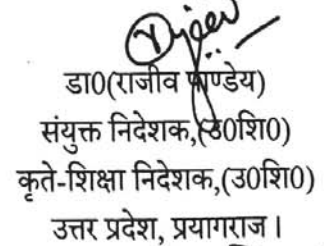 डा0(राजीव पाण्डेय)
संयुक्त निदेशक,(उ0शि0)
कृते-शिक्षा निदेशक,(उ0शि0)
उत्तर प्रदेश, प्रयागराज।